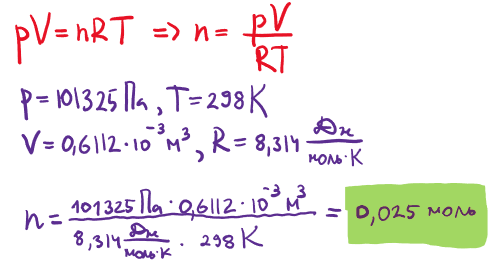 pV = nRT => n = pV/RT
p = 101325 Па, T = 298 K
V = 0,6112 · 10⁻³ м³, R = 8,314 Дж/моль·К
n = (101325 Па · 0,6112 · 10⁻³ м³)/(8,314 Дж/моль·К · 298 K) = 0,025 моль